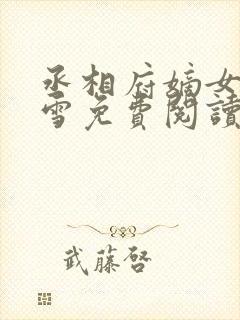 丞相府嫡女
雪免費閱讀
武藤啓